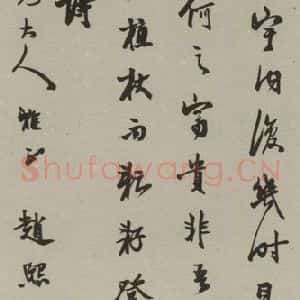 宇內復幾時
何之富貴非吾
植杖而耘耔登
詩
大人雅正 趙熙
Shufawang.CN